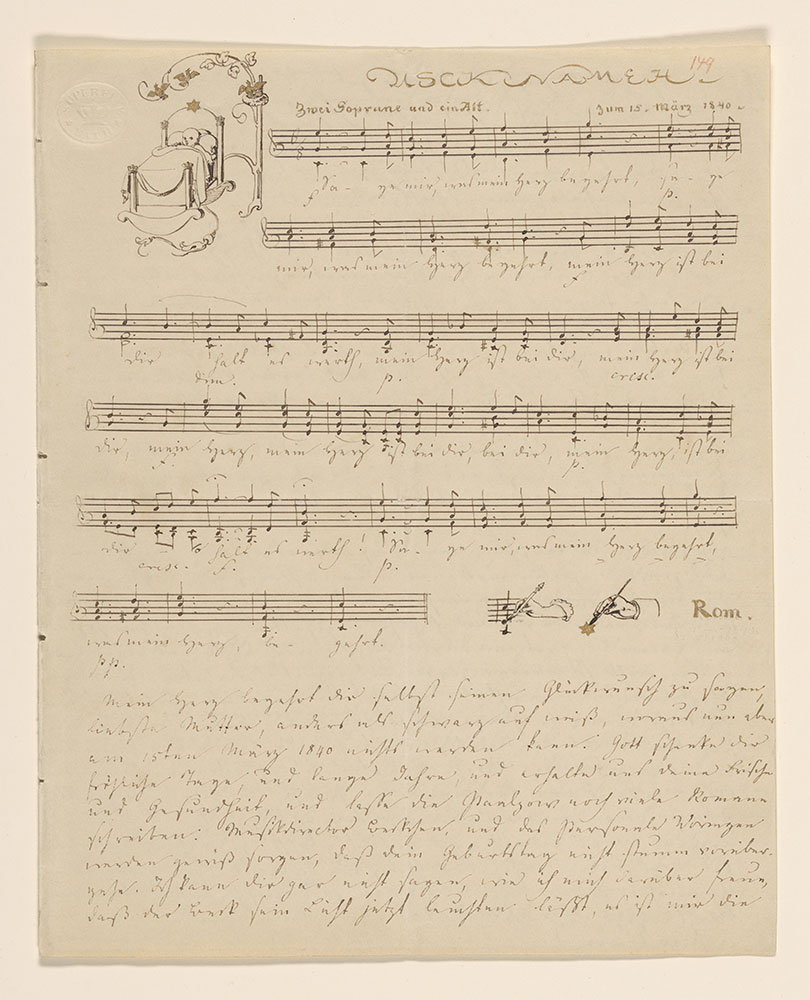 149
USCK NAMEH.
Zwei Soprane und ein Alt. Zum 15. März 1840.
Sa - ge mir, was mein Herz begehrt, sa - ge
f p.
mir, was mein Herz begehrt, mein Herz ist bei
f
dir halt es werth, mein Herz ist bei dir, mein Herz ist bei
dim. p. cresc.
dir, mein Herz, mein Herz ist bei dir, bei dir, mein Herz ist bei
p.
dir halt es werth! Sa - ge mir, was mein Herz begehrt,
cresc. f. p.
was mein Herz, be - gehrt.
pp.
Rom.
Mein Herz begehrt dir selbst seinen Glückwunsch zu sagen,
liebste Mutter, anders als schwarz auf weiß, woraus nun aber
am 15ten März 1840 nichts werden kann. Gott schenke dir
fröhliche Tage, und lange Jahre, und erhalte uns deine Frische
und Gesundheit, und lasse die Paalzow noch viele Romane
schreiben. Musikdirector und das Personale
werden gewiß sorgen, daß dein Geburtstag nicht stumm vorüber-
gehe. Ich kann dir gar nicht sagen, wie ich mich darüber freue,
daß der sein Licht jetzt leuchten läßt, es ist mir die